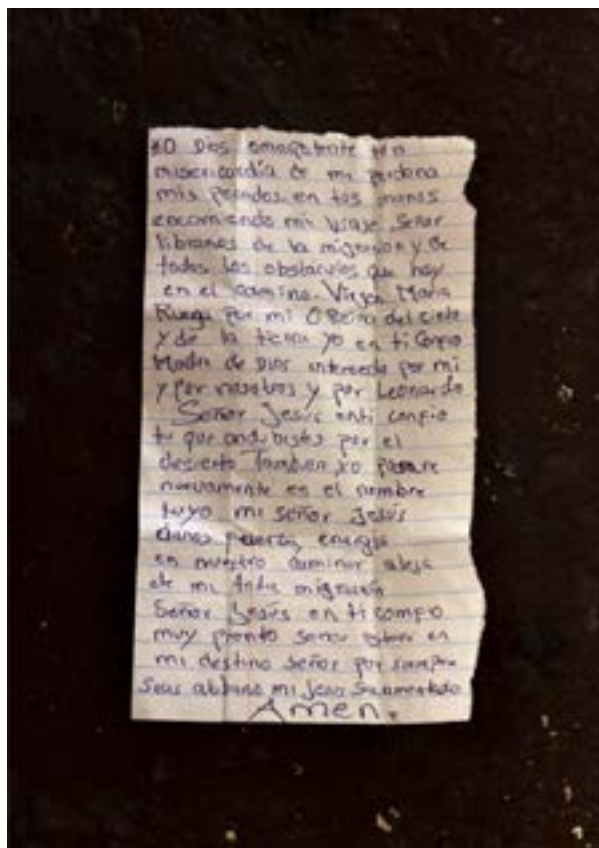 O Dios omnipotente ten
misericordia de mi perdona
mis pecados en tus manos
encomiendo mi viaje Señor
libranos de la migracion y de
todos los obstaculos que hay
en el camino. Virgen Maria
Ruega por mi O Reina del cielo
y de la tierra yo en ti Confio
Madre de Dios intercede por mi
y por nosotros y por Leonardo
Señor Jesús en ti confio
tu que andubistes por el
desierto Tambien yo pasare
nuevamente en el nombre
tuyo mi señor Jesús
danos fuerza, energia
en nuestro caminar aleja
de mi toda migración
Señor Jesús en ti confio
muy pronto señor estare en
mi destino señor por siempre
Seas mi Jesus Sacramentado
Amen.